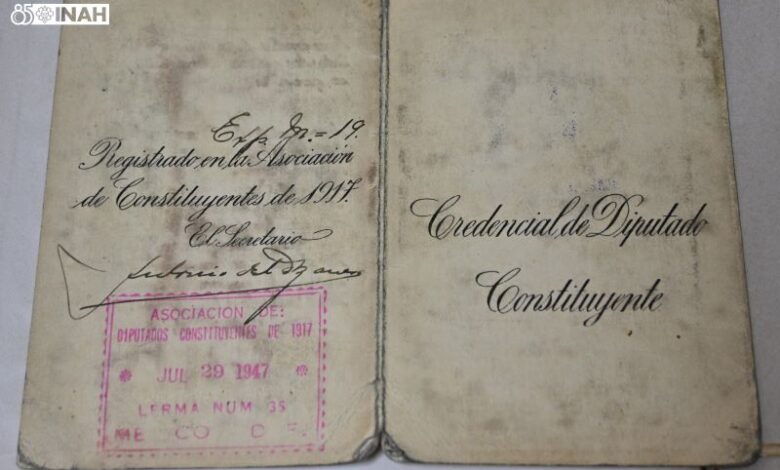 85 INAH
Exp. Nº = 19.
Registrado en la Asociación
de Constituyentes de 1917.
El Secretario
Antonio del
ASOCIACION DE:
DIPUTADOS CONSTITUYENTES DE 1917
JUL 29 1947
LERMA NUM 35
ME CO D F.
Credencial de Diputado
Constituyente